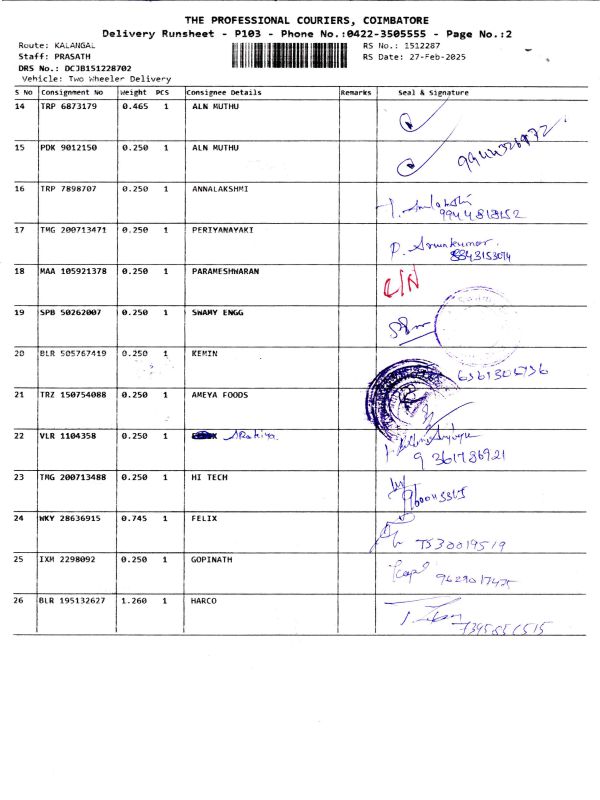 THE PROFESSIONAL COURIERS, COIMBATORE
Delivery Runsheet - P103 - Phone No.:0422-3505555 - Page No.:2
Route: KALANGAL
RS No.: 1512287
Staff: PRASATH
RS Date: 27-Feb-2025
DRS No.: DCJB151228702
Vehicle: Two Wheeler Delivery
S No Consignment No Weight PCS Consignee Details Remarks Seal & Signature
14 TRP 6873179 0.465 1 ALN MUTHU
15 PDK 9012150 0.250 1 ALN MUTHU
16 TRP 7898707 0.250 1 ANNALAKSHMI
17 TMG 200713471 0.250 1 PERIYANAYAKI P. Arunkumar.
18 MAA 105921378 0.250 1 PARAMESHWARAN
19 SPB 50262007 0.250 1 SWAMY ENGG
20 BLR 505767419 0.250 1 KEMIN
21 TRZ 150754088 0.250 1 AMEYA FOODS
22 VLR 1104358 0.250 1
23 TMG 200713488 0.250 1 HI TECH
24 WKY 28636915 0.745 1 FELIX
25 IXM 2298092 0.250 1 GOPINATH
26 BLR 195132627 1.260 1 HARCO